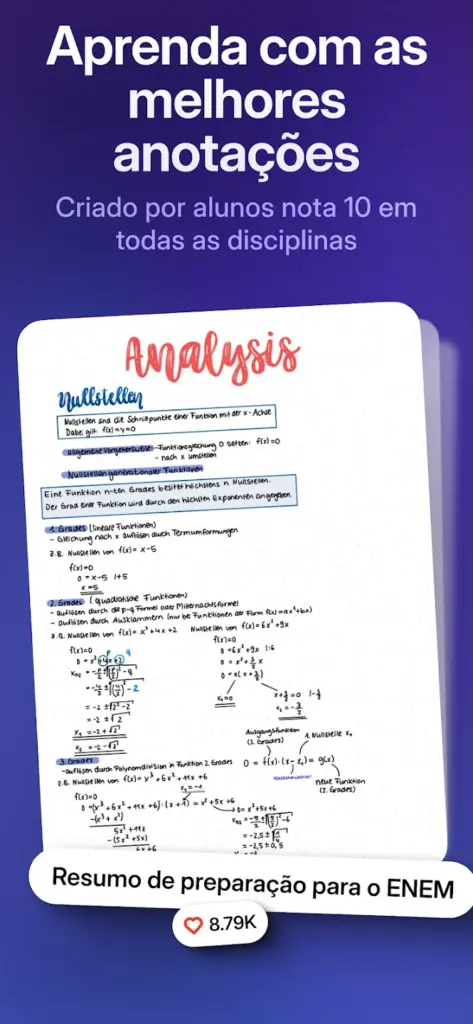 Aprenda com as
melhores
anotações
Criado por alunos nota 10 em
todas as disciplinas
Analysis
Nullstellen
Nullstellen sind die Schnittpunkte einer Funktion mit der x-Achse
Dabei gilt: f(x)=y=0
allgemeine Vorgehensweise -Funktionsgleichung 0 setten: f(x)=0
- nach x umstellen
Nullstellen ganzrationaler Funktionen
Eine Funktion n-ten Grades besitzt höchstens n Nullstellen.
Der Grad einer Funktion wird durch den höchsten Exponenten angegeben.
1. Grades (lineare Funktionen)
- Gleichung nach x auflösen durch Termumformungen
z.B. Nullstellen von f(x)= x-5
f(x)=0
0 = x-5 1+5
x=5
2. Grades (quadratische Funktionen)
- auflösen durch die p-q Formel oder Mitternachtsformel
- auflösen durch Ausklammern (nur bei Funktionen der Form f(x)=ax²+bx)
z.B. Nullstellen von f(x)= x²+4x+2 Nullstellen von f(x)=6x²+9x
f(x)=0 f(x)=0
0 = x²+4x+2 0=6x²+9x 1:6
0 = x²+3/2x
0 = x(x+3/2)
= -2 ± √2²-2
= -2 ± √2
x₁=0 x+3/2=0 1-3/2
x₁ = -2+√2 x₂ = -3/2
x₂ = -2-√2
Ausgangsfunktion
(3. Grades)
1. Nullstelle x₁
0 = f(x):(x-x₁)= g(x)
neue Funktion
(2. Grades)
3. Grades
-auflösen durch Polynomdivision in Funktion 2. Grades
z.B. Nullstellen von f(x)= x³+6x²+11x+6
x₁=-1
f(x)=0
0 =(x³+6x²+11x+6):(x+1)= x²+5x+6
-(x³+x²)
5x²+11x
-(5x²+5x)
6x+6
0= x²+5x+6
= -2,5 ± 0,5
Resumo de preparação para o ENEM
8.79K